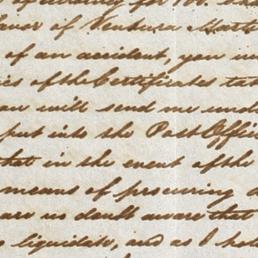 for
favor of Ventura
of an accident, you
of the Certificates
will send me
put into the Post Office
that in the event of the
means of procuring
are no doubt aware that
liquidate, and as I